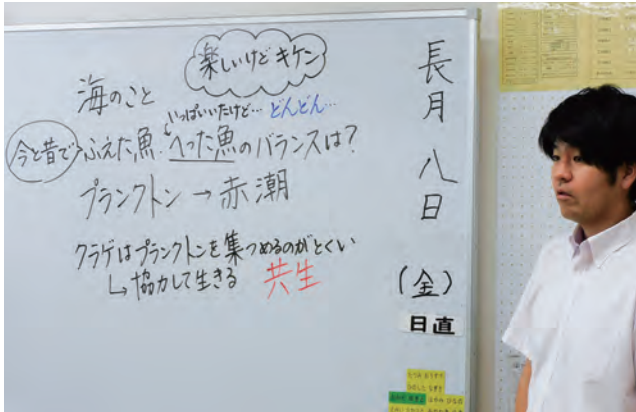 楽しいけどキケン
海のこと
いっぱいいたけど… どんどん…
今と昔で ふえた魚・へった魚のバランスは?
プランクトン → 赤潮
クラゲはプランクトンを集つめるのがとくい
↳ 協力して生きる 共生
長月八日
(金)
日直